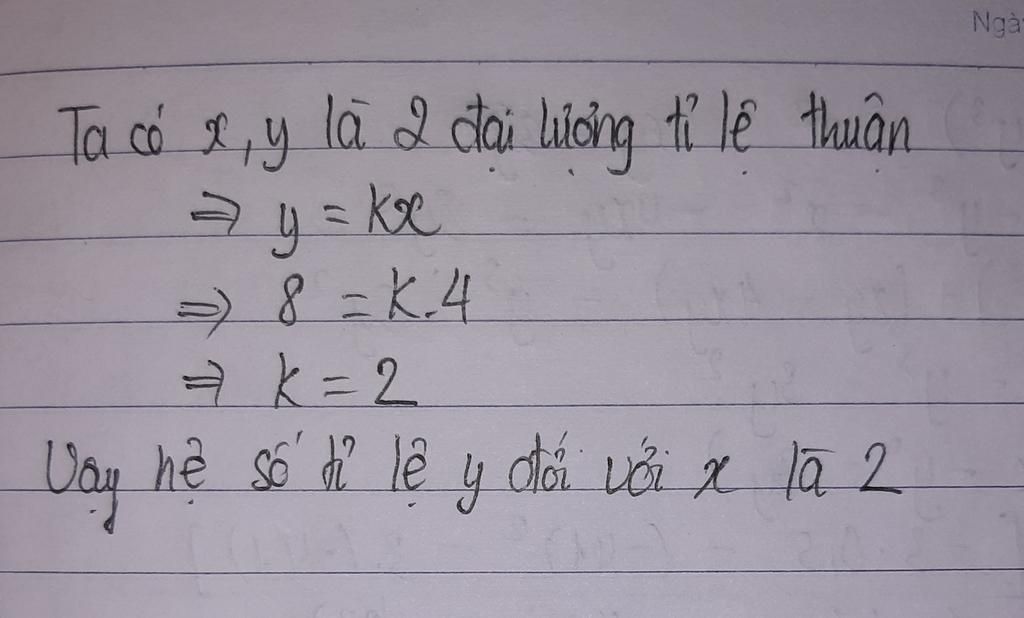 Ngà
Ta có x, y là 2 đại lượng tỉ lệ thuận
⇒ y = kx
⇒ 8 = k.4
⇒ k = 2
Vậy hệ số tỉ lệ y đối với x là 2